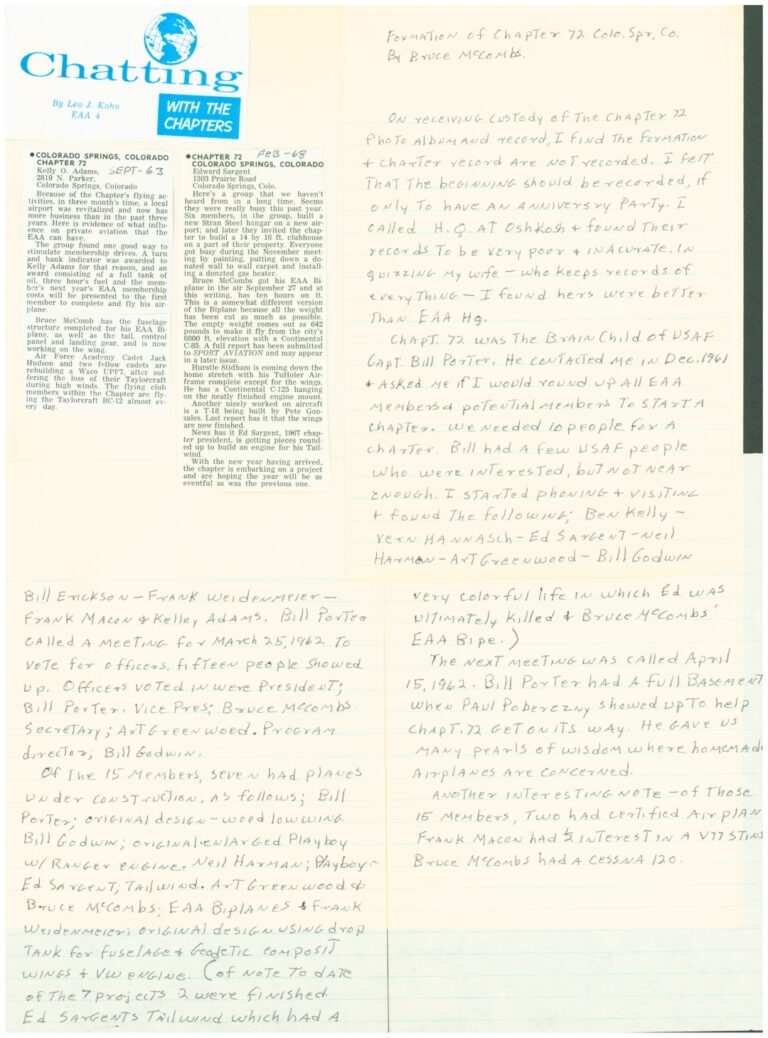 Chatting
By Leo J. Kohn
EAA 4
WITH THE
CHAPTERS
•COLORADO SPRINGS, COLORADO
CHAPTER 72
SEPT-63
Kelly O. Adams,
2819 N. Parker,
Colorado Springs, Colorado
Because of the Chapter's flying ac-
tivities, in three month's time, a local
airport was revitalized and now has
more business than in the past three
years. Here is evidence of what influ-
ence on private aviation that the
EAA can have.
The group found one good way to
stimulate membership drives. A turn
and bank indicator was awarded to
Kelly Adams for that reason, and an
award consisting of a full tank of
oil, three hour's fuel and the mem-
ber's next year's EAA membership
costs will be presented to the first
member to complete and fly his air-
plane.
Bruce McComb has the fuselage
structure completed for his EAA Bi-
plane, as well as the tail, control
panel and landing gear, and is now
working on the wing.
Air Force Academy Cadet Jack
Hudson and two fellow cadets are
rebuilding a Waco UPF7, after suf-
fering the loss of their Taylorcraft
during high winds. The flying club
members within the Chapter are fly-
ing the Taylorcraft BC-12 almost ev-
ery day.
FEB-68
•CHAPTER 72
COLORADO SPRINGS, COLORADO
Edward Sargent
1303 Prairie Road
Colorado Springs, Colo.
Here's a group that we haven't
heard from in a long time. Seems
they were really busy this past year.
Six members, in the group, built a
new Stran Steel hangar on a new air-
port; and later they invited the chap-
ter to build a 14 by 16 ft. clubhouse
on a part of their property. Everyone
got busy during the November meet-
ing by painting, putting down a do-
nated wall to wall carpet and install-
ing a donated gas heater.
Bruce McCombs got his EAA Bi-
plane in the air September 27 and at
this writing, has ten hours on it.
This is a somewhat different version
of the Biplane because all the weight
has been cut as much as possible.
The empty weight comes out as 642
pounds to make it fly from the city's
6800 ft. elevation with a Continental
C-85. A full report has been submitted
to SPORT AVIATION and may appear
in a later issue.
Hurstle Stidham is coming down the
home stretch with his TuHoler Air-
frame complete except for the wings.
He has a Continental C-125 hanging
on the neatly finished engine mount.
Another nicely worked on aircraft
is a T-18 being built by Pete Gon-
zales. Last report has it that the wings
are now finished.
News has it Ed Sargent, 1967 chap-
ter president, is getting pieces round-
ed up to build an engine for his Tail-
wind.
With the new year having arrived,
the chapter is embarking on a project
and are hoping the year will be as
eventful as was the previous one.
Formation of Chapter 72 Colo. Spr, Co.
By Bruce McCombs.
On receiving custody of the Chapter 72
Photo Album and record, I find the formation
+ charter record are not recorded. I felt
that the beginning should be recorded, if
only to have an anniversary party. I
called H.Q. at Oshkosh + found their
records to be very poor + inacurate. In
quizzing my wife - who keeps records of
everything - I found hers were better
than EAA Hq.
Chapt. 72 was the Brain Child of USAF
Capt. Bill Porter. He contacted me in Dec. 1961
+ asked me if I would round up all EAA
members + potential members to start a
chapter. We needed 10 people for a
charter. Bill had a few USAF people
who were interested, but not near
enough. I started phoning + visiting
+ found the following; Ben Kelly -
Vern Hannasch - Ed Sargent - Neil
Harman - Art Greenwood - Bill Godwin
Bill Erickson - Frank Weidenmeier -
Frank Macon + Kelley Adams. Bill Porter
called a meeting for March 25, 1962 to
vote for officers. Fifteen people showed
up. Officers voted in were President;
Bill Porter. Vice Pres; Bruce McCombs.
Secretary; Art Greenwood. Program
director; Bill Godwin.
Of the 15 members, seven had planes
under construction, as follows; Bill
Porter; original design - wood low wing
Bill Godwin; original-enlarged Playboy
w/ Ranger engine. Neil Harman; Playboy -
Ed Sargent; Tailwind. Art Greenwood +
Bruce McCombs; EAA Biplanes + Frank
Weidenmeier; original design using drop
tank for fuselage + Geodetic composit
wings + VW engine. (Of note to date
of the 7 projects 2 were finished
Ed Sargents Tailwind which had a
very colorful life in which Ed was
ultimately killed + Bruce McCombs'
EAA Bipe.)
The next meeting was called April
15, 1962. Bill Porter had a full Basement
when Paul Poberezny showed up to help
Chapt. 72 get on its way. He gave us
many pearls of wisdom where homemad
airplanes are concerned.
Another interesting note - of those
15 members, two had certified airplan
Frank Macon had ½ interest in a V77 Stins
Bruce McCombs had a Cessna 120.